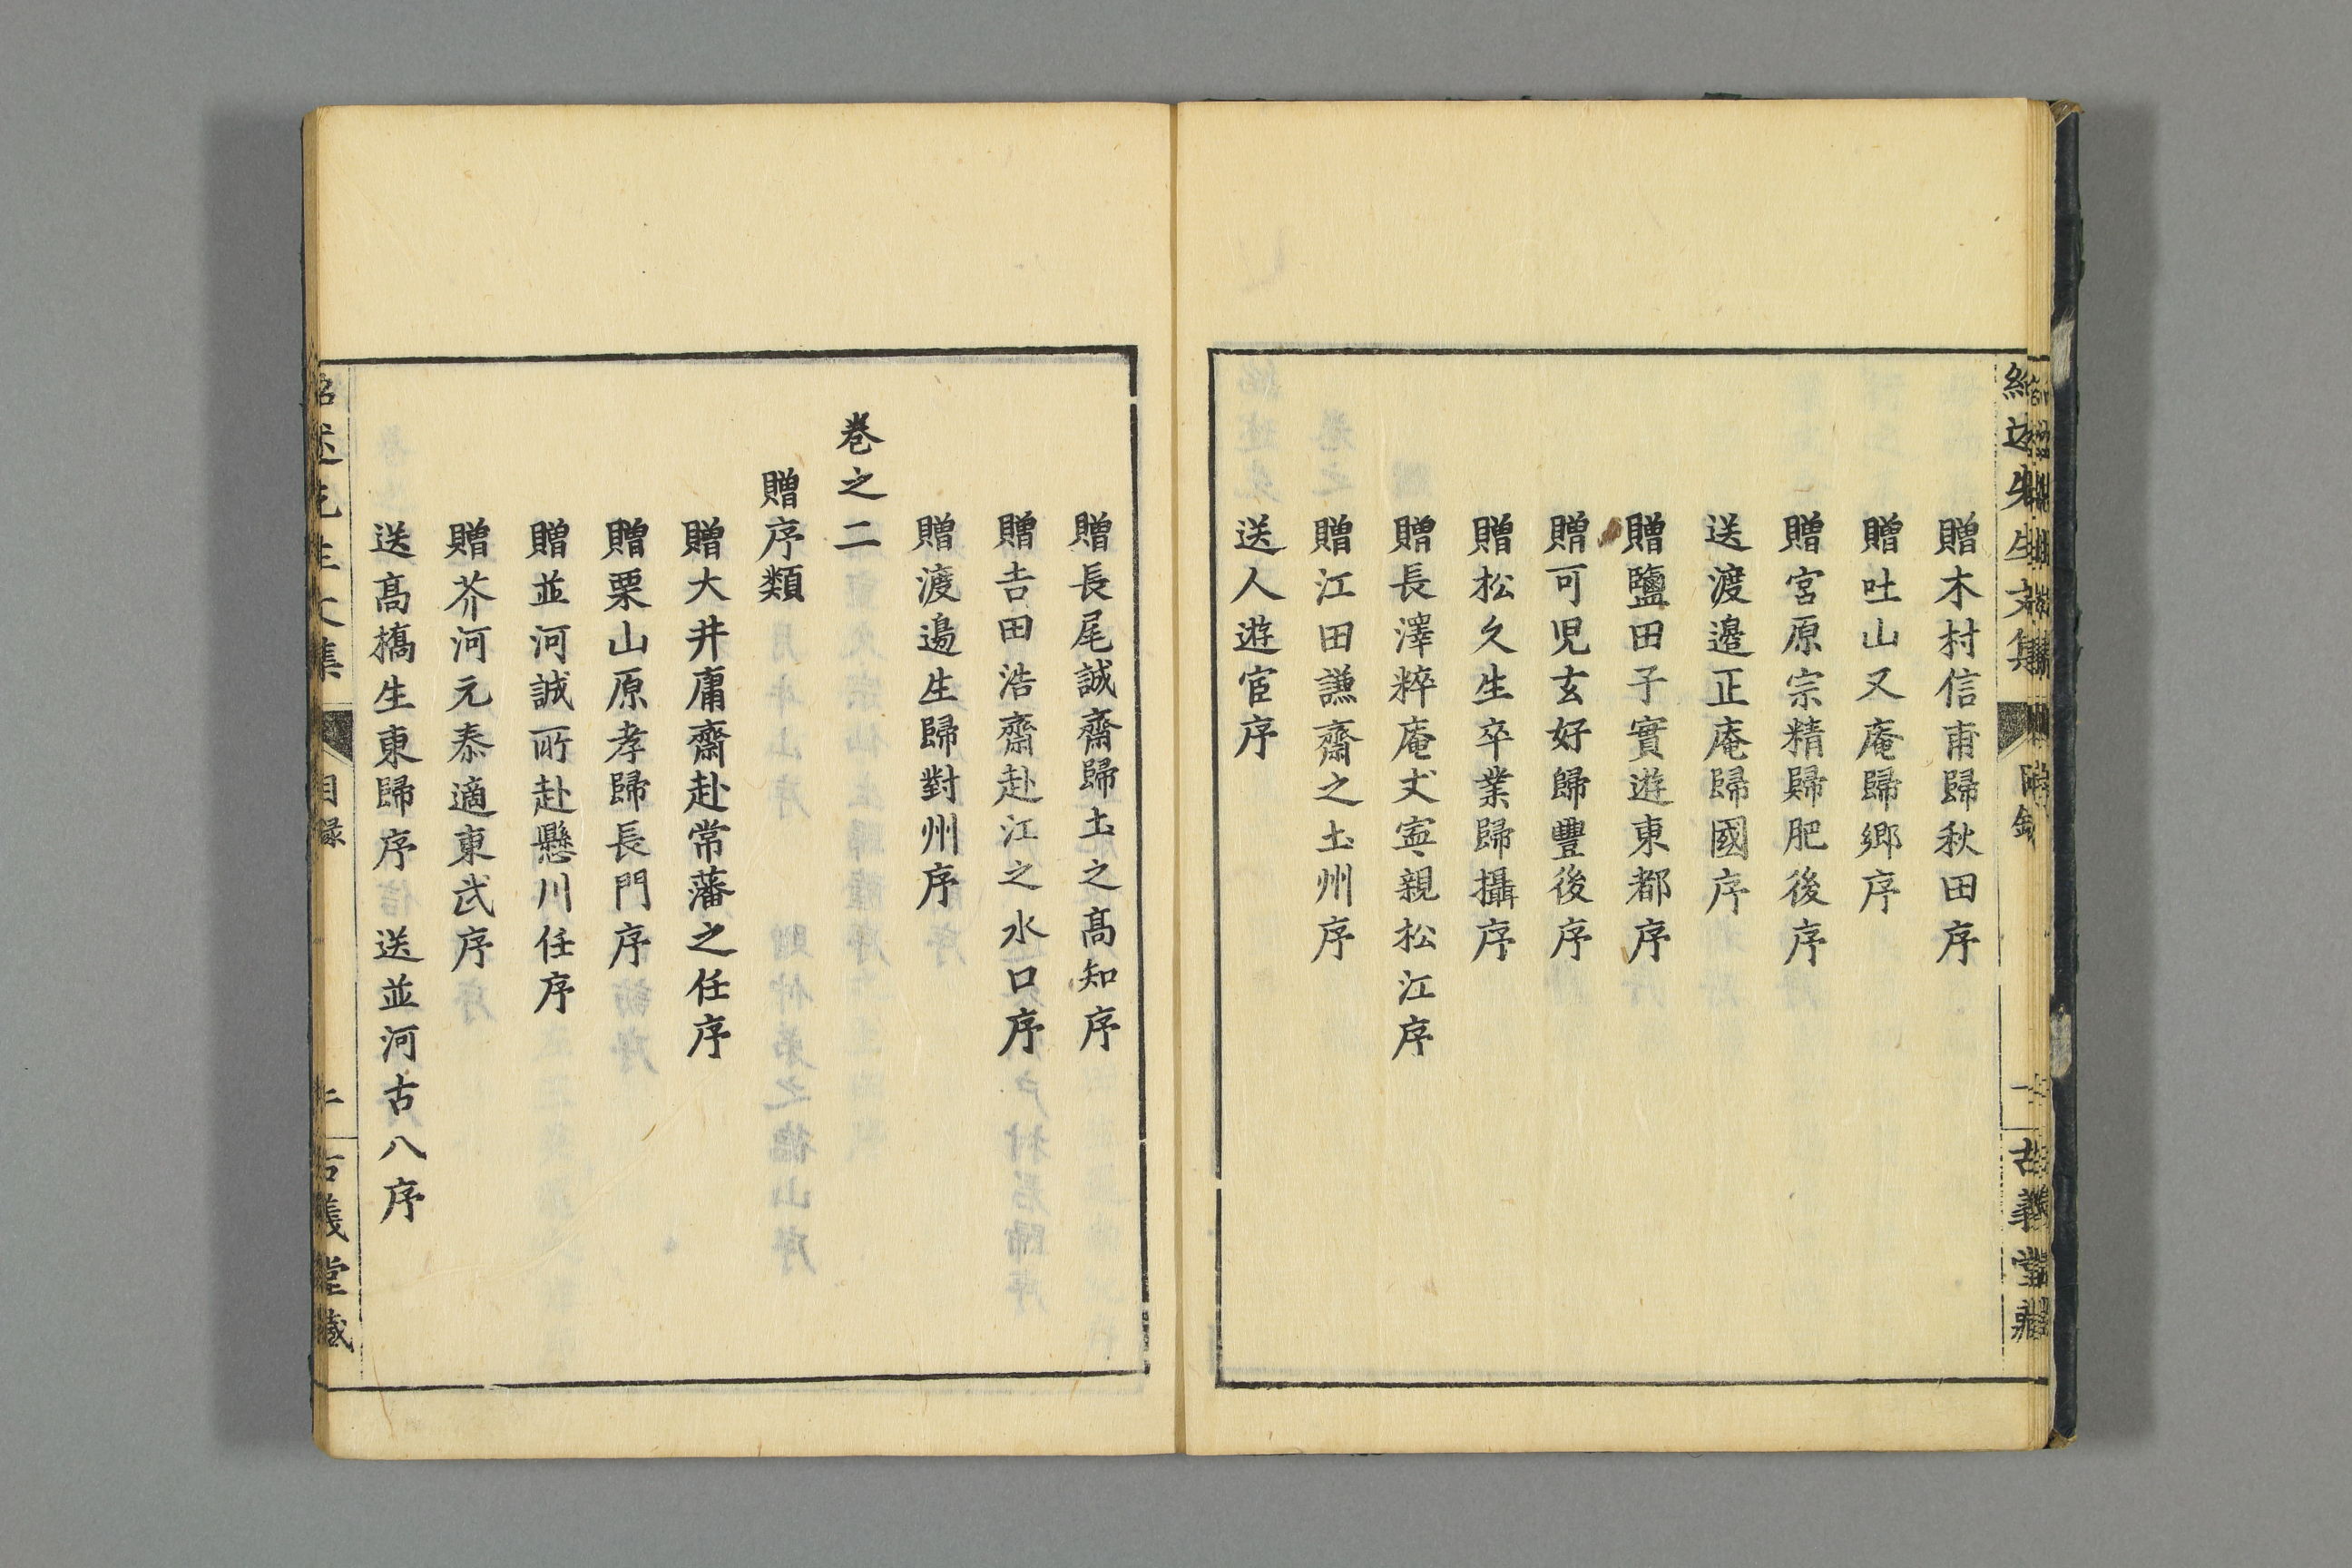 贈木村信甫歸秋田序
贈吐山又庵歸鄉序
贈宮原宗精歸肥後序
送渡邉正庵歸國序
贈鹽田子實遊東都序
贈可児玄好歸豐後序
贈松久生卒業歸攝序
贈長澤粹庵丈寧親松江序
贈江田謙齋之土州序
送人遊宦序
贈長尾誠齋歸土之髙知序
贈吉田浩齋赴江之水口序
贈渡邉生歸對州序
卷之二
贈序類
贈大井庸齋赴常藩之任序
贈栗山原孝歸長門序
贈並河誠所赴懸川任序
贈芥河元泰適東武序
送髙橋生東歸序 送並河古八序
目錄
古義堂藏